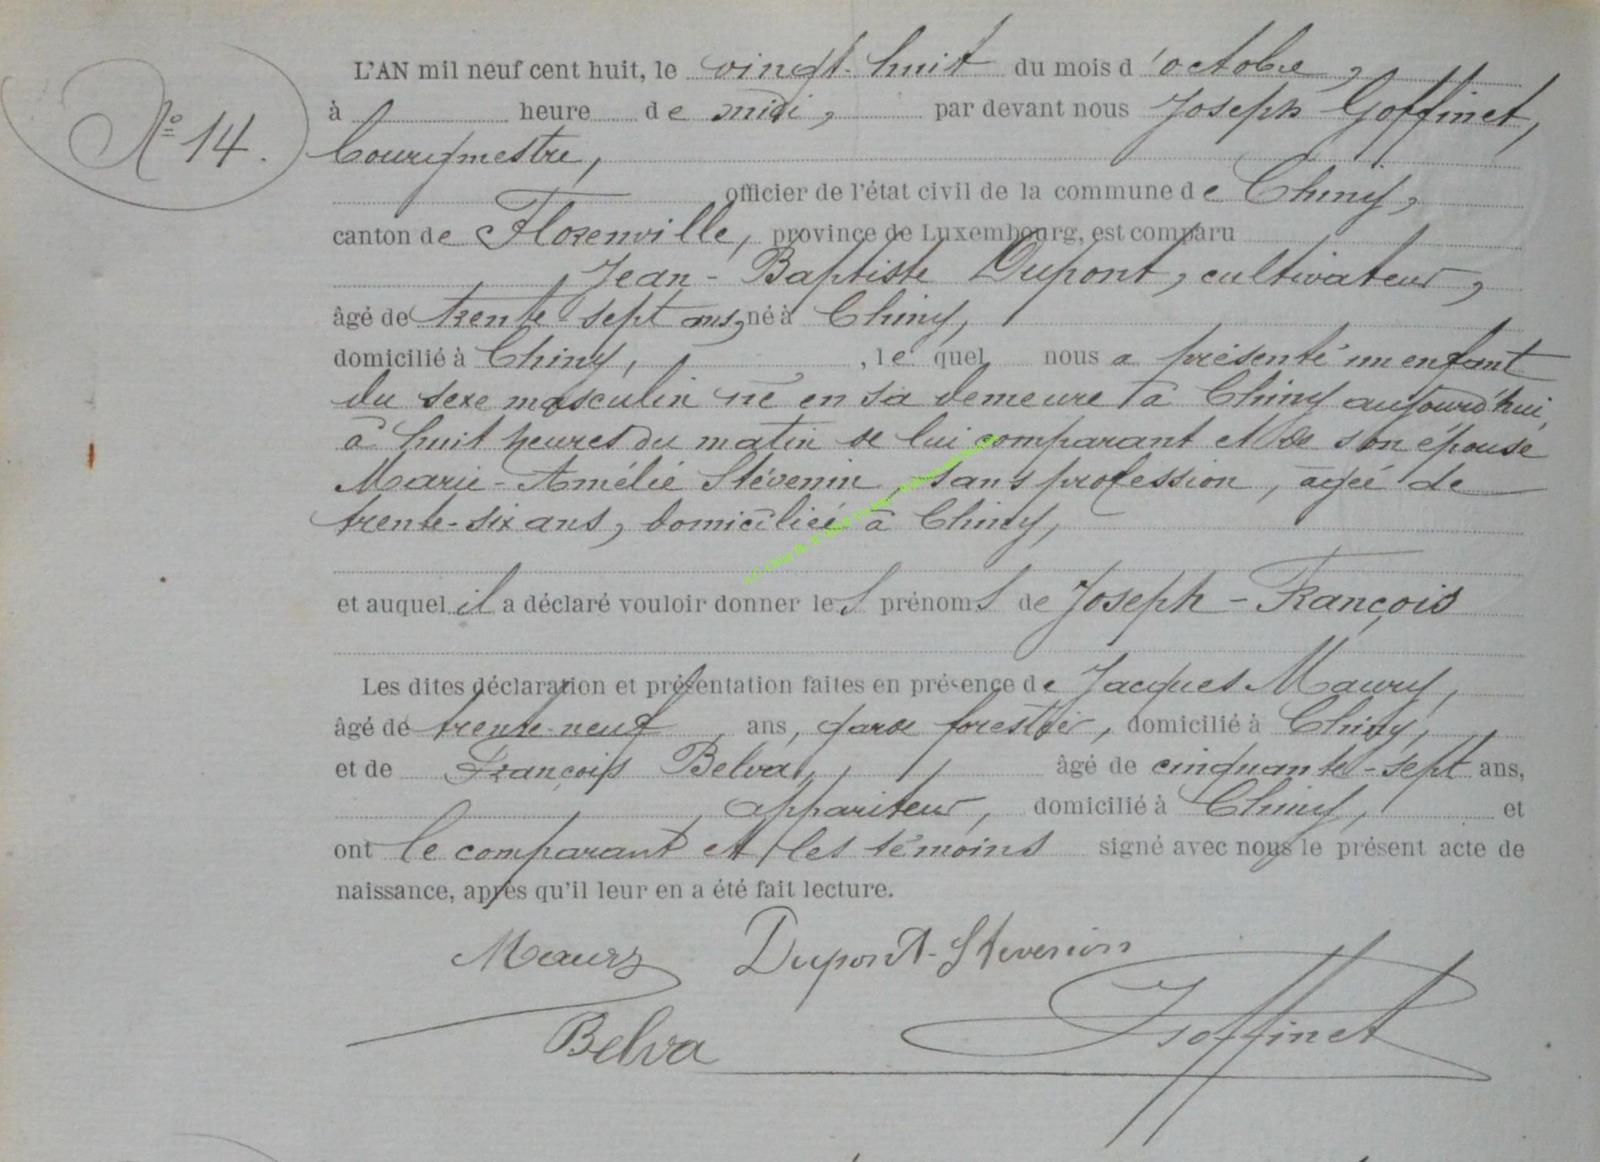 L'AN mil neuf cent huit, le vingt-huit du mois d'octobre,
à heure de midi, par devant nous Joseph Goffinet,
Nº 14. bourgmestre,
officier de l'état civil de la commune de Chiny,
canton de Florenville, province de Luxembourg, est comparu
Jean-Baptiste Dupont, cultivateur,
âgé de trente sept ans, né à Chiny,
domicilié à Chiny, , le quel nous a présenté un enfant
du sexe masculin né en sa demeure à Chiny aujourd'hui,
à huit heures du matin de lui comparant et de son épouse
Marie-Amélie Stévenin, sans profession, âgée de
trente-six ans, domiciliée à Chiny,
et auquel il a déclaré vouloir donner les prénoms de Joseph-François
Les dites déclaration et présentation faites en présence de Jacques Maury,
âgé de trente-neuf ans, garde forestier, domicilié à Chiny,
et de François Belva, âgé de cinquante-sept ans,
appariteur, domicilié à Chiny, et
ont le comparant et les témoins signé avec nous le présent acte de
naissance, après qu'il leur en a été fait lecture.
Maury Dupont-Stevenin
Belva JGoffinet